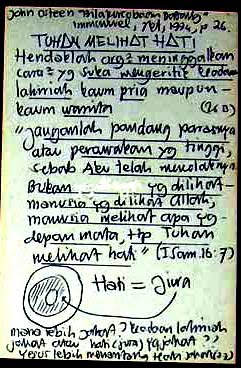 John Osteen
Immanuel, Jkt, 1994, p 26
TUHAN MELIHAT HATI
Hendaklah org² meninggalkan
cara² yg suka mengeritik keadaan
lahiriah kaum pria maupun
kaum wanita (26 B)
"Janganlah pandang parasnya
atau perawakan yg tinggi,
sebab Aku telah menolaknya.
Bukan yg dilihat
manusia yg dilihat Allah,
manusia melihat apa yg
depan mata, ttp Tuhan
melihat hati" (I Sam. 16: 7)
Hati = Jiwa
mana lebih jahat? keadaan lahiriah
jahat atau hati (jiwa) yg jahat?
Yesus lebih